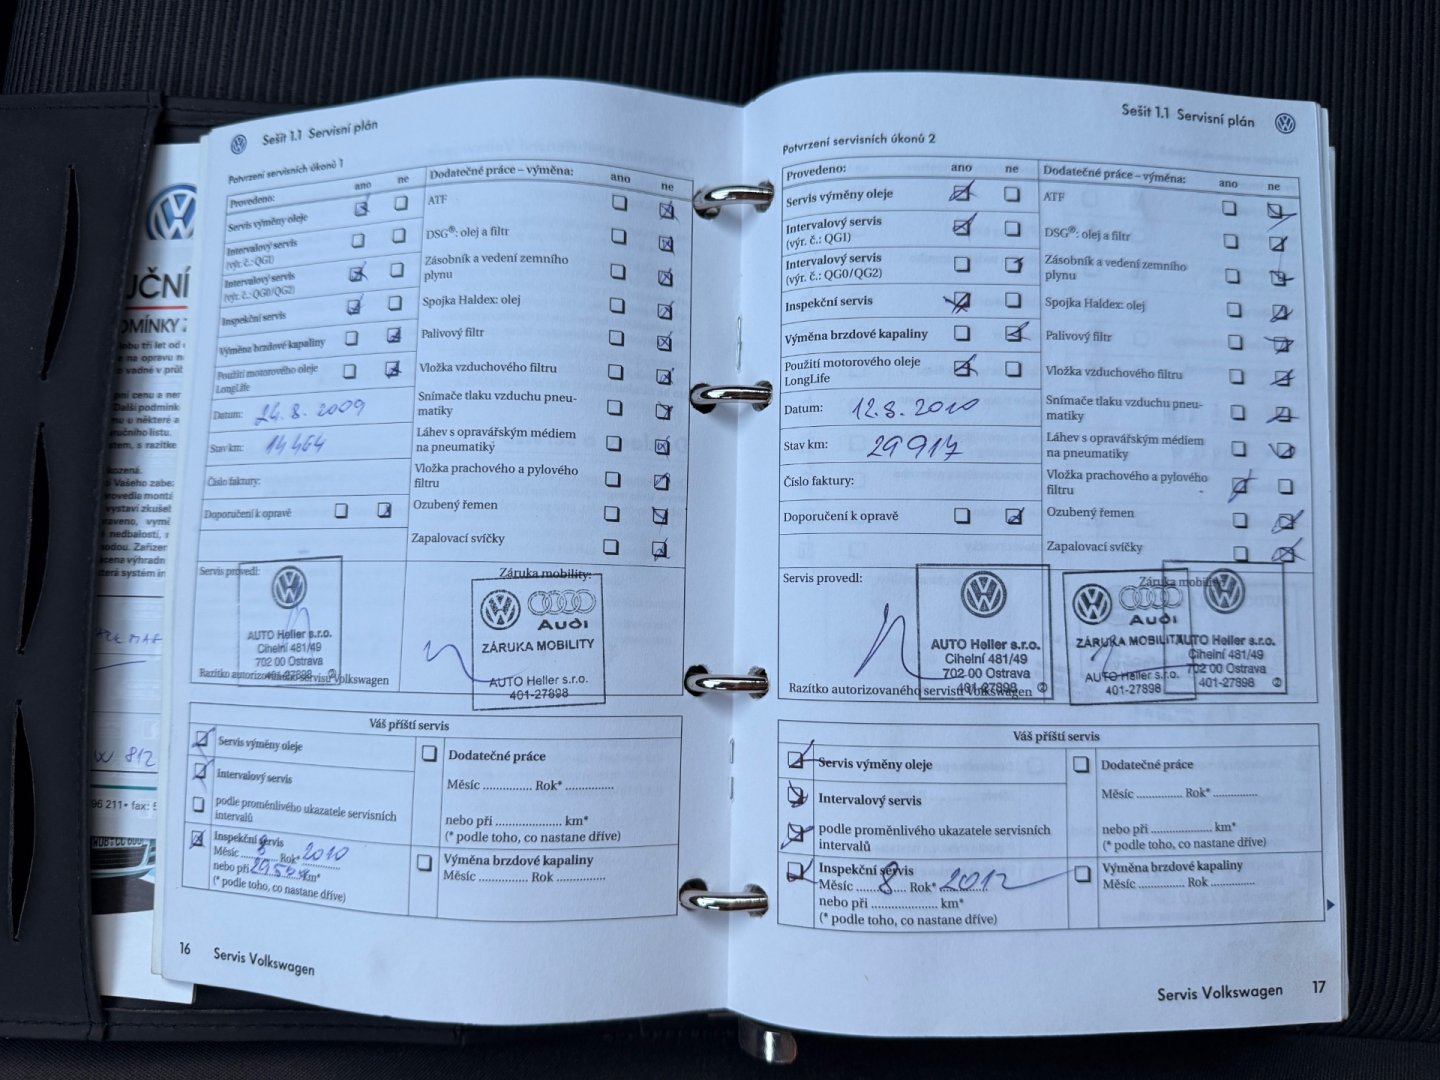 Sešit 1.1 Servisní plán
Potvrzení servisních úkonů 1
Provedeno: ano ne
Servis výměny oleje
Intervalový servis
(výr. č.: QG1)
Intervalový servis
(výr. č.: QG0/QG2)
Inspekční servis
Výměna brzdové kapaliny
Použití motorového oleje
LongLife
Datum: 24.8.2009
Stav km: 14 464
Číslo faktury:
Doporučení k opravě
Dodatečné práce – výměna: ano ne
ATF
DSG®: olej a filtr
Zásobník a vedení zemního
plynu
Spojka Haldex: olej
Palivový filtr
Vložka vzduchového filtru
Snímače tlaku vzduchu pneu-
matiky
Láhev s opravářským médiem
na pneumatiky
Vložka prachového a pylového
filtru
Ozubený řemen
Zapalovací svíčky
Servis provedl:
AUTO Heller s.r.o.
Cihelní 481/49
702 00 Ostrava
401-27898 2
Razítko autorizovaného servisu Volkswagen
Záruka mobility:
Audi
ZÁRUKA MOBILITY
AUTO Heller s.r.o.
401-27898
Váš příští servis
Servis výměny oleje
Intervalový servis
podle proměnlivého ukazatele servisních
intervalů
Inspekční servis
Měsíc 8 Rok* 2010
nebo při km*
(* podle toho, co nastane dříve)
Dodatečné práce
Měsíc ............... Rok* ...............
nebo při ..................... km*
(* podle toho, co nastane dříve)
Výměna brzdové kapaliny
Měsíc ............... Rok ...............
16 Servis Volkswagen
Sešit 1.1 Servisní plán
Potvrzení servisních úkonů 2
Provedeno: ano ne
Servis výměny oleje
Intervalový servis
(výr. č.: QG1)
Intervalový servis
(výr. č.: QG0/QG2)
Inspekční servis
Výměna brzdové kapaliny
Použití motorového oleje
LongLife
Datum: 12.8.2010
Stav km: 29917
Číslo faktury:
Doporučení k opravě
Dodatečné práce – výměna: ano ne
ATF
DSG®: olej a filtr
Zásobník a vedení zemního
plynu
Spojka Haldex: olej
Palivový filtr
Vložka vzduchového filtru
Snímače tlaku vzduchu pneu-
matiky
Láhev s opravářským médiem
na pneumatiky
Vložka prachového a pylového
filtru
Ozubený řemen
Zapalovací svíčky
Servis provedl:
AUTO Heller s.r.o.
Cihelní 481/49
702 00 Ostrava
401-27898 2
Razítko autorizovaného servisu Volkswagen
Záruka mobility:
Audi
ZÁRUKA MOBILITY
AUTO Heller s.r.o.
401-27898
AUTO Heller s.r.o.
Cihelní 481/49
702 00 Ostrava
401-27898 2
Váš příští servis
Servis výměny oleje
Intervalový servis
podle proměnlivého ukazatele servisních
intervalů
Inspekční servis
Měsíc 8 Rok* 2012
nebo při ..................... km*
(* podle toho, co nastane dříve)
Dodatečné práce
Měsíc ............... Rok* ...............
nebo při ..................... km*
(* podle toho, co nastane dříve)
Výměna brzdové kapaliny
Měsíc ............... Rok ...............
Servis Volkswagen 17